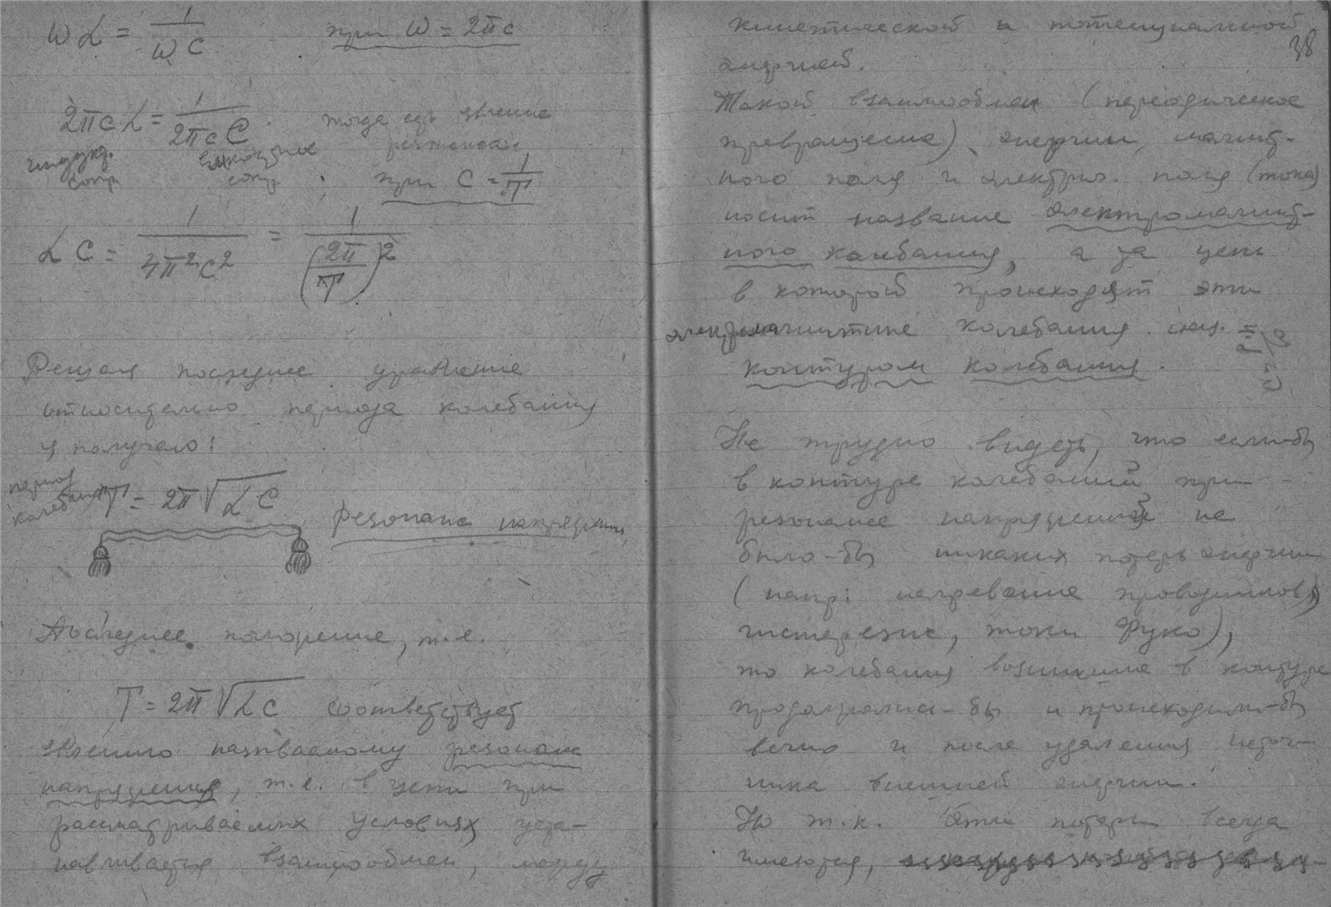 ωL = 1/ωC при ω = 2πc
2πcL = 1/2πcC тогда есть явление
индукц. емкостное резонанса
сопр. сопр. при C = 1/T
LC = 1/4π²c² = 1/(2π/T)²
Решая последнее уравнение
относительно периода колебания
я получаю:
период
колебания T = 2π√LC
резонанс напряжения
Последнее положение, т.е.
T = 2π√LC соответствует
явлению называемому резонанс
напряжения, т.е. в цепи при
рассматриваемых условиях уста-
навливается взаимообмен, между
38
кинетической и потенциальной
энергией.
Такой взаимообмен (периодическое
превращение) энергии магнит-
ного поля и электрич. поля (тока)
носит название электромагнит-
ного колебания, а та цепь
в которой происходят эти
электромагнитные колебания наз.
контуром колебания.
Не трудно видеть, что если-бы
в контуре колебаний при
резонансе напряжений не
было-бы никаких потерь энергии
(напр: нагревание проводников,
гистерезис, токи Фуко),
то колебания возникшие в контуре
продолжались-бы и происходили-бы
вечно и после удаления источ-
ника внешней энергии.
Но т.к. эти потери всегда
имеются,